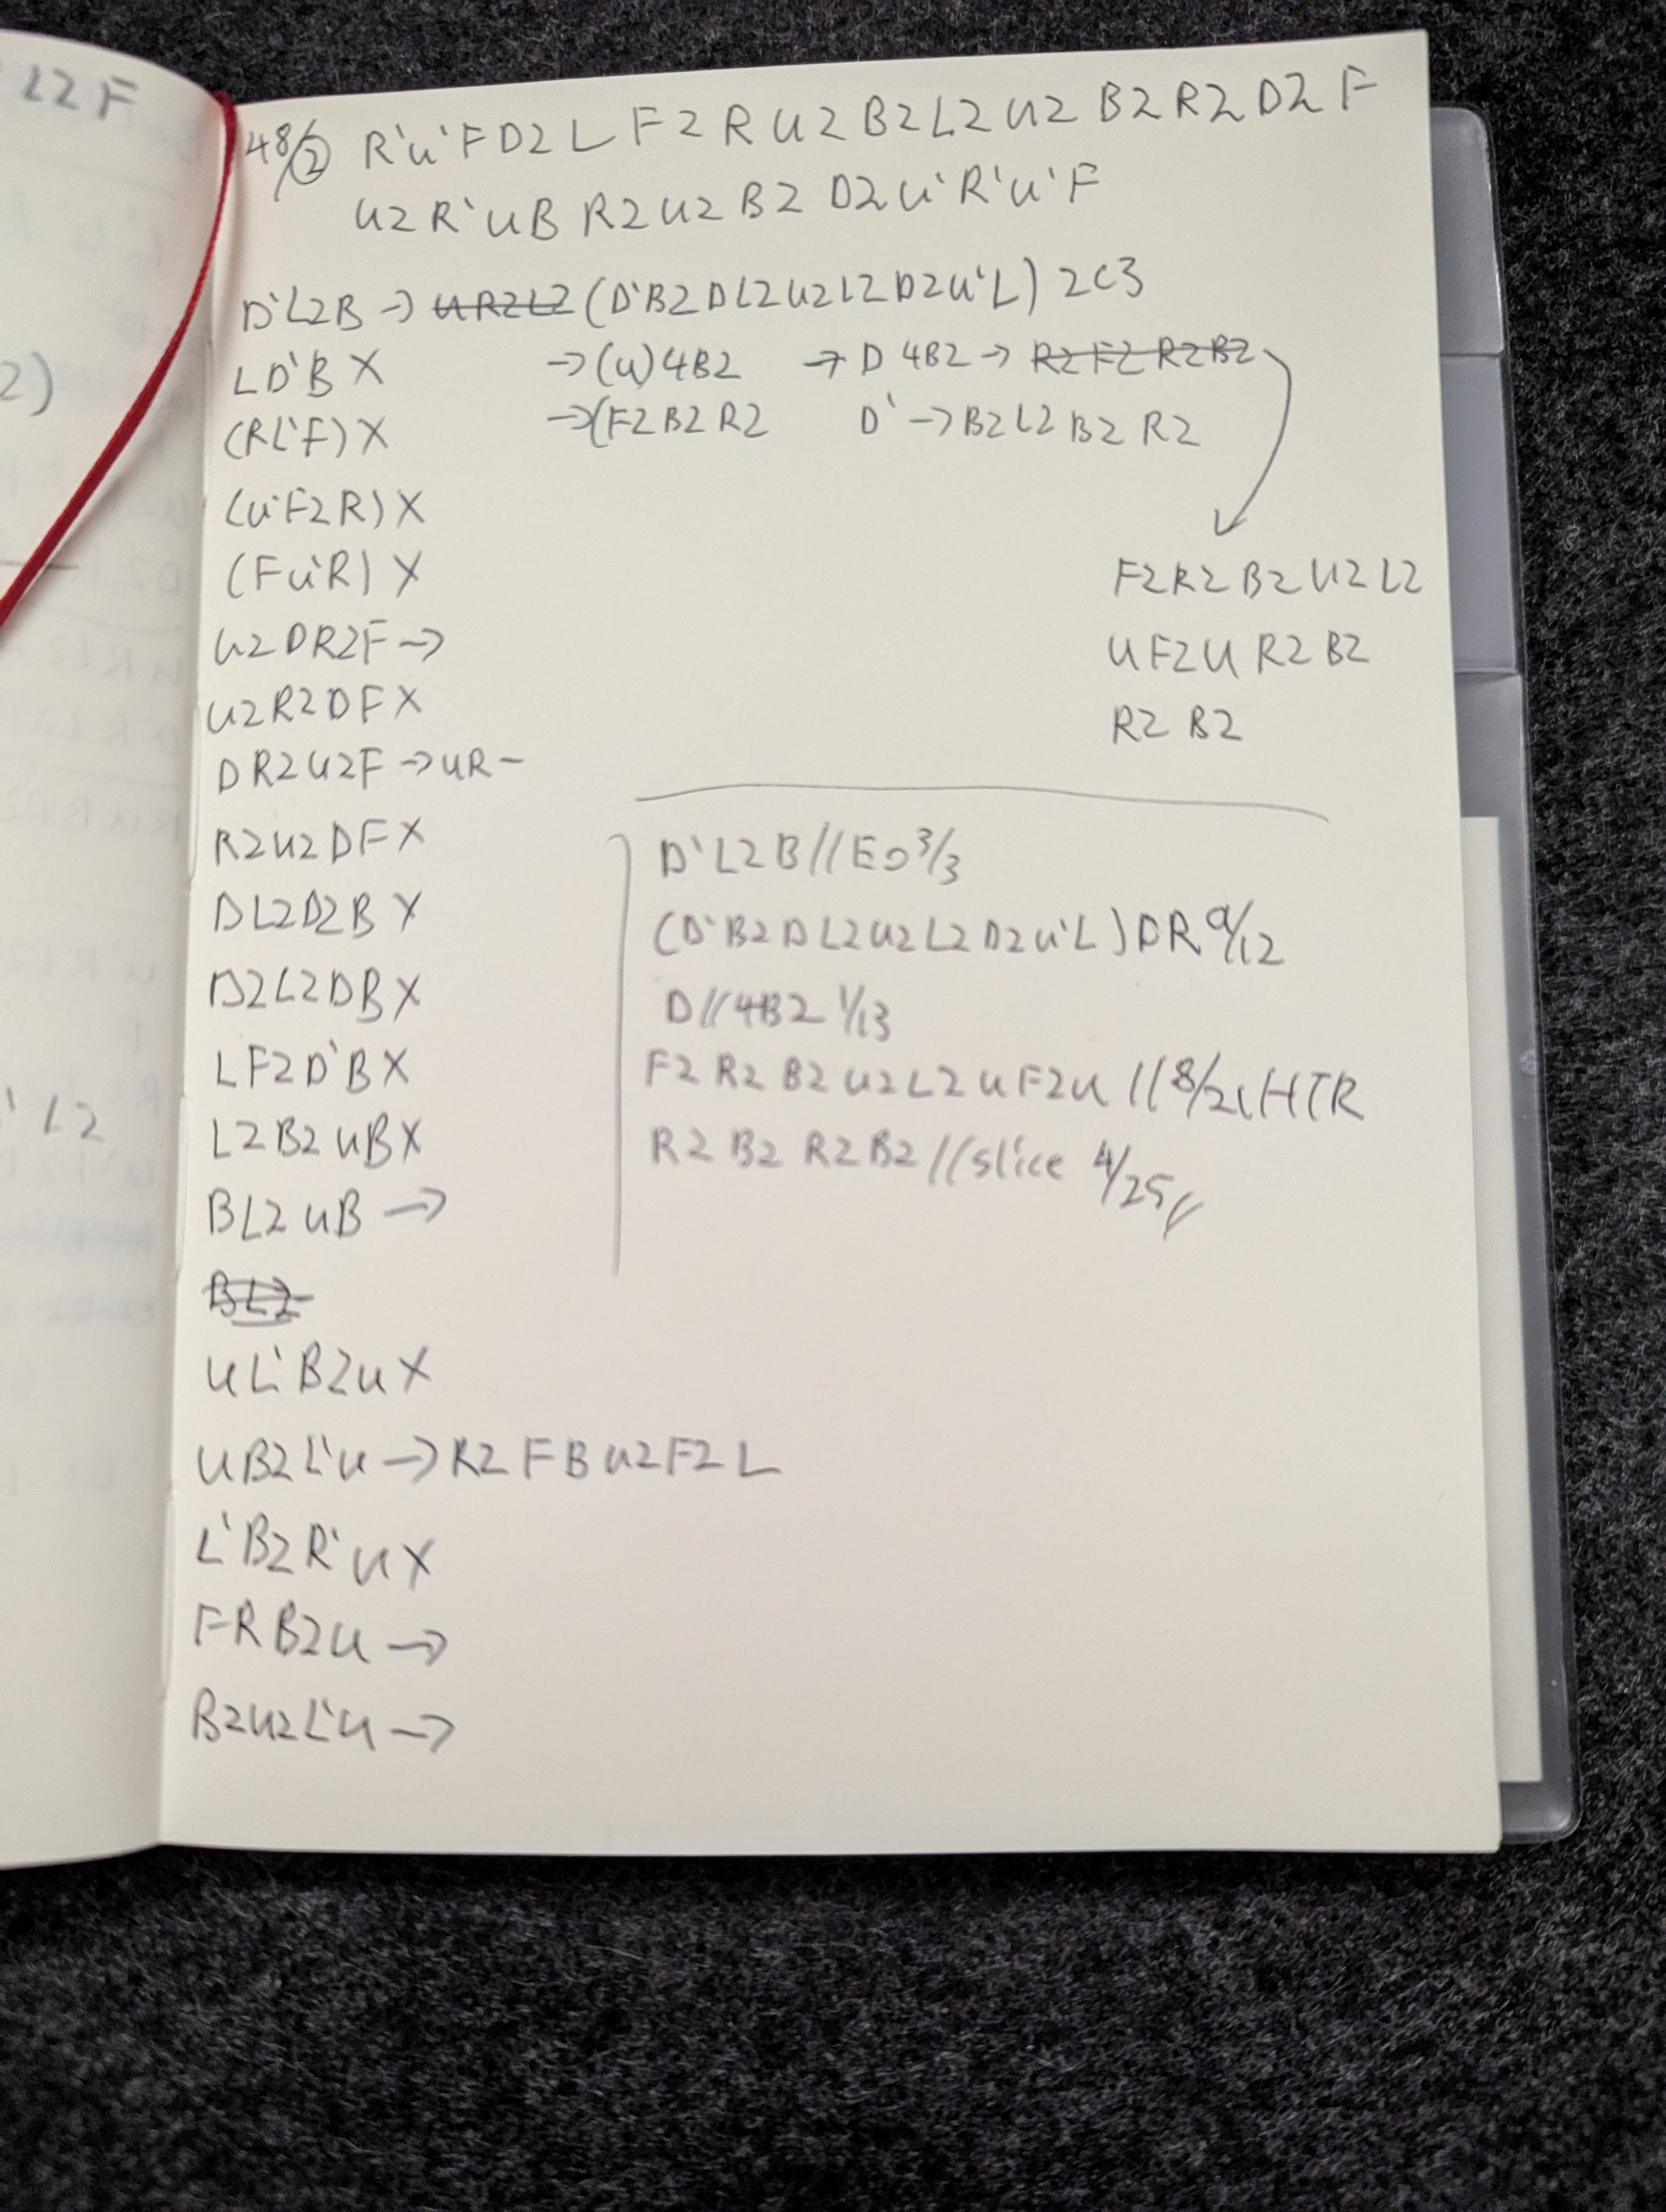 L2F
48/② R'U'FD2LF2RU2B2L2U2B2R2D2F
U2R'UBR2U2B2D2U'R'U'F
D'L2B → UR2L2 (D'B2DL2U2L2D2U'L) 2C3
LD'B X →(U)4B2 → D 4B2 → R2F2R2B2
(RL'F) X →(F2B2R2 D' → B2L2B2R2
(U'F2R) X
(FU'R) X
F2R2B2U2L2
U2DR2F →
UF2UR2B2
U2R2DF X
R2B2
DR2U2F → UR-
R2U2DF X
DL2D2B X
D2L2DB X
LF2D'B X
L2B2UB X
BL2UB →
BL2
UL'B2U X
UB2L'U → R2FBU2F2L
L'B2R'U X
FRB2U →
B2U2L'U →
D'L2B//EO 3/3
(D'B2DL2U2L2D2U'L) DR 9/12
D//4B2 1/13
F2R2B2U2L2UF2U//8/21 HTR
R2B2R2B2//slice 4/25
2)
' L2